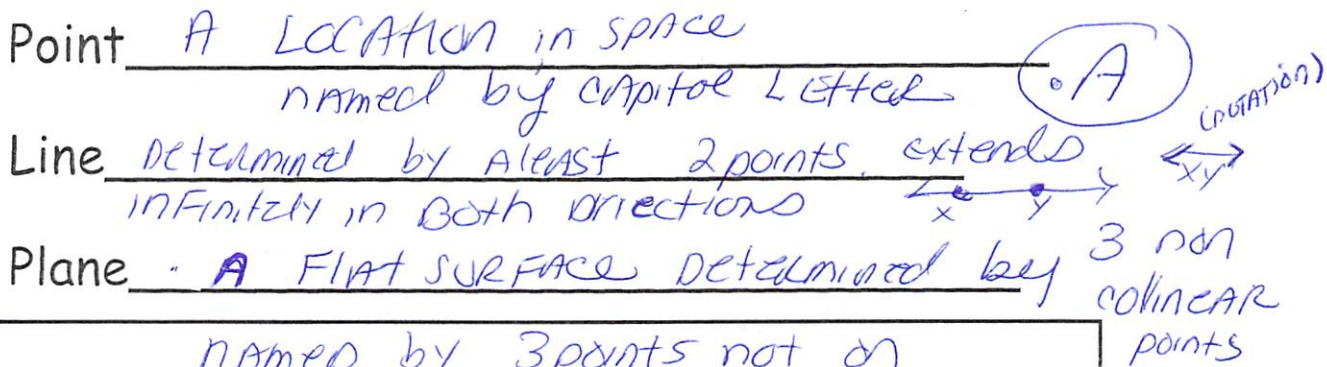 Point A LOCAtion in spAce
nAmed by cApitol LEtteR .A
(notAtion)
Line DeteRmined by AleAst 2 points. extends XY
inFinitely in Both Driections X Y
Plane . A FlAt SURFAce DeteRmined by 3 non
collineAR
points
nAmed by 3 points not on